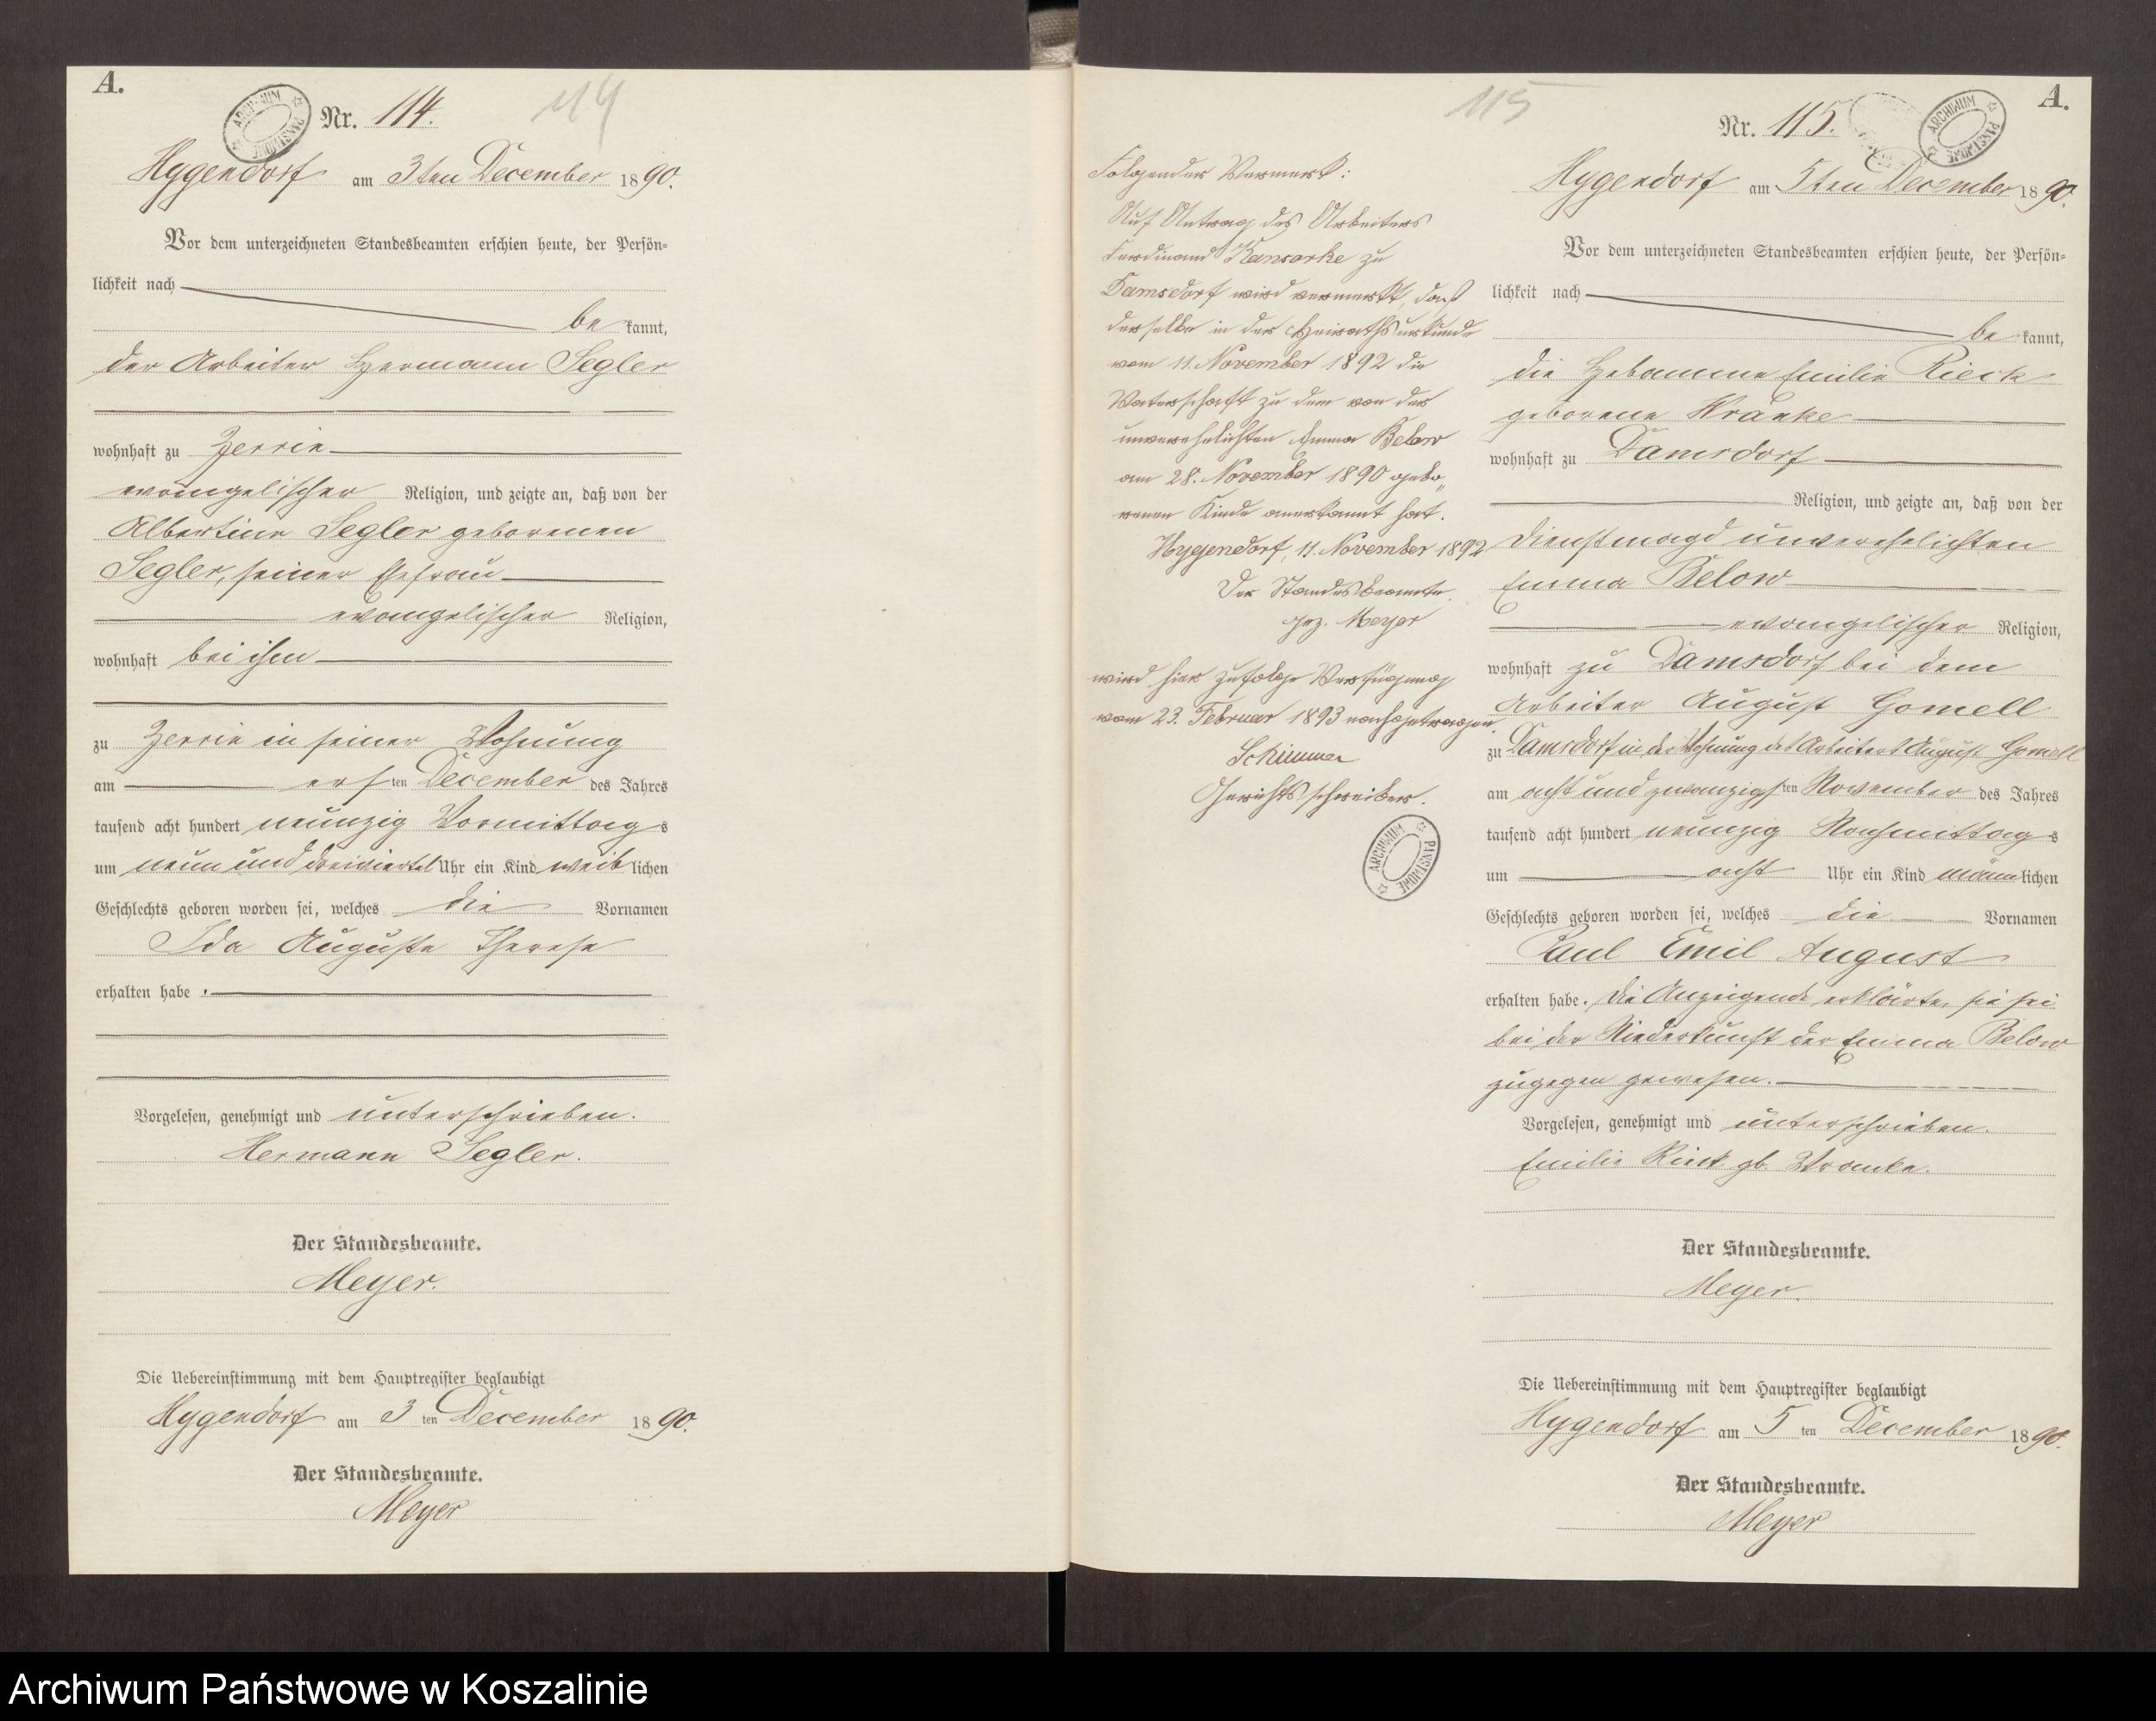 A.
ARCHIWUM PAŃSTWOWE
Nr. 114.
114
Hygendorf am 3ten December 1890.
Vor dem unterzeichneten Standesbeamten erschien heute, der Persön=
lichkeit nach
be kannt,
der Arbeiter Hermann Segler
wohnhaft zu Zerrin
evangelischer Religion, und zeigte an, daß von der
Albertine Segler geborenen
Segler, seiner Ehefrau
evangelischer Religion,
wohnhaft bei ihm
zu Zerrin in seiner Wohnung
am ersten December des Jahres
tausend acht hundert neunzig Vormittags
um neun und dreiviertel Uhr ein Kind weiblichen
Geschlechts geboren worden sei, welches die Vornamen
Ida Auguste Therese
erhalten habe.
Vorgelesen, genehmigt und unterschrieben.
Hermann Segler.
Der Standesbeamte.
Meyer.
Die Uebereinstimmung mit dem Hauptregister beglaubigt
Hygendorf am 3ten December 1890.
Der Standesbeamte.
Meyer
115
Folgender Vermerk:
Auf Antrag des Arbeiters
Ferdinand Kansorke zu
Damsdorf wird vermerkt, daß
derselbe in der Heirathsurkunde
vom 11. November 1892 die
Vaterschaft zu dem von der
unverehelichten Emma Below
am 28. November 1890 gebo„
renen Kinde anerkannt hat.
Hygendorf, 11. November 1892
Der Standesbeamte.
gez. Meyer
wird hier zufolge Verfügung
vom 23. Februar 1893 nachgetragen.
Schimmer
Gerichtsschreiber.
ARCHIWUM PAŃSTWOWE
A.
Nr. 115.
ARCHIWUM PAŃSTWOWE
Hygendorf am 5ten December 1890.
Vor dem unterzeichneten Standesbeamten erschien heute, der Persön=
lichkeit nach
be kannt,
die Hebamme Emilie Rieck
geborene Wranke
wohnhaft zu Damsdorf
Religion, und zeigte an, daß von der
Dienstmagd unverehelichten
Emma Below
evangelischer Religion,
wohnhaft zu Damsdorf bei dem
Arbeiter August Gomell
zu Damsdorf in der Wohnung des Arbeiters August Gomell
am acht und zwanzigsten November des Jahres
tausend acht hundert neunzig Nachmittags
um acht Uhr ein Kind männlichen
Geschlechts geboren worden sei, welches die Vornamen
Paul Emil August
erhalten habe. Die Anzeigende erklärte, sie sei
bei der Niederkunft der Emma Below
zugegen gewesen.
Vorgelesen, genehmigt und unterschrieben.
Emilie Rieck gb. Wranke.
Der Standesbeamte.
Meyer.
Die Uebereinstimmung mit dem Hauptregister beglaubigt
Hygendorf am 5ten December 1890.
Der Standesbeamte.
Meyer
Archiwum Państwowe w Koszalinie